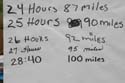 24 Hours 87 miles
25 Hours 90 miles
26 Hours 92 miles
27 Hours 95 miles
28:40 100 miles